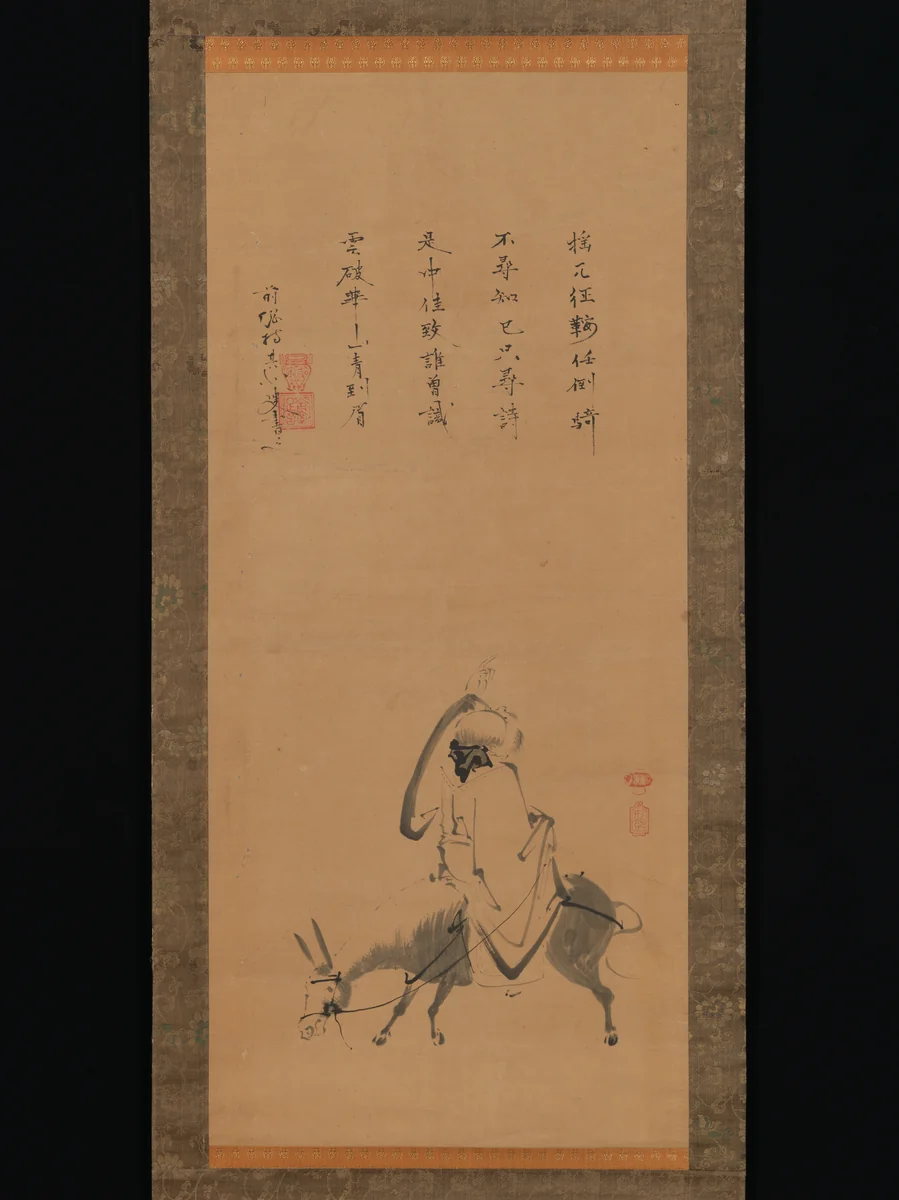 搖兀征鞍任倒騎
不尋知己只尋詩
是中佳致誰曾識
雲破華山青到眉
前